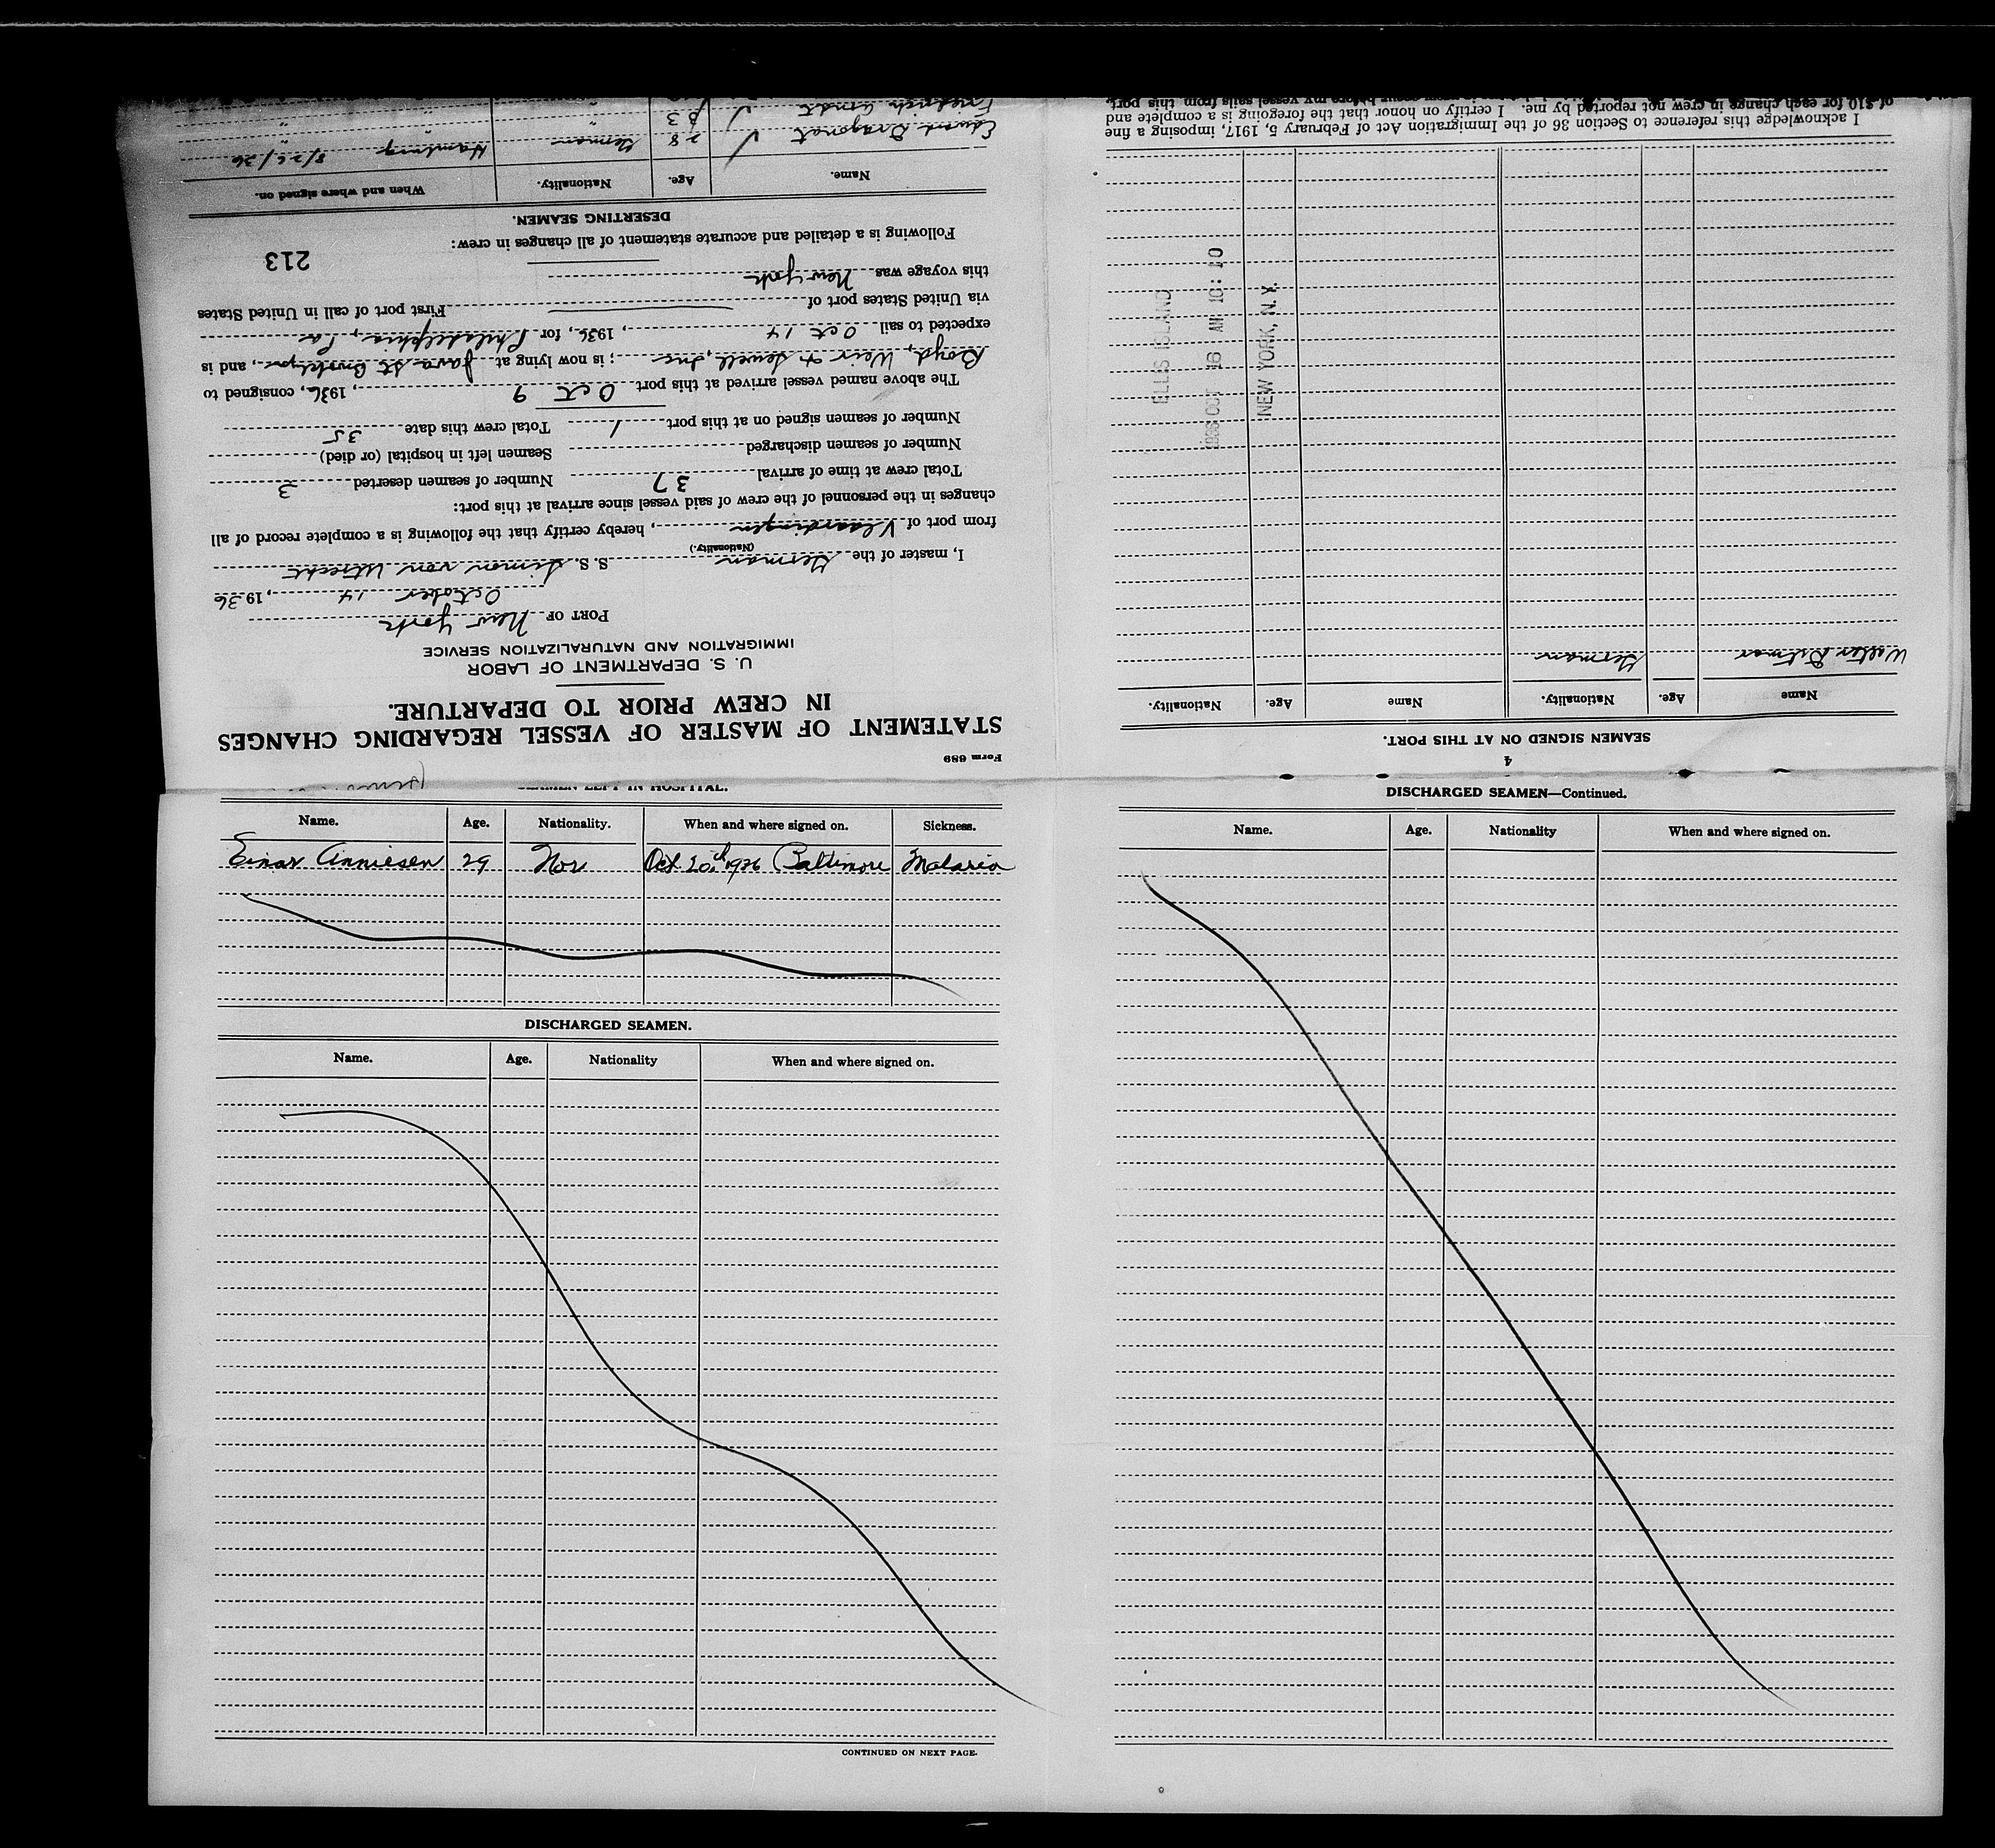 Form 689
STATEMENT OF MASTER OF VESSEL REGARDING CHANGES
IN CREW PRIOR TO DEPARTURE.
U. S. DEPARTMENT OF LABOR
IMMIGRATION AND NATURALIZATION SERVICE
PORT OF New York
October 14, 1936
I, master of the German S. S. Simon von Utrecht
(Nationality.)
from port of Vlaardingen, hereby certify that the following is a complete record of all
changes in the personnel of the crew of said vessel since arrival at this port:
Total crew at time of arrival 37 Number of seamen deserted 3
Number of seamen discharged Seamen left in hospital (or died)
Number of seamen signed on at this port 1 Total crew this date 35
The above named vessel arrived at this port Oct 9, 1936, consigned to
Boyd, Weir & Sewell, Inc; is now lying at Java St Brooklyn, and is
expected to sail Oct 14, 1936, for Philadelphia, Pa
via United States port of First port of call in United States
this voyage was New York
213
Following is a detailed and accurate statement of all changes in crew:
DESERTING SEAMEN.
Name. Age. Nationality. When and where signed on.
Edward 28 German Hamburg 8/26/36
Friedrich Arndt 33 " " "
4
SEAMEN SIGNED ON AT THIS PORT.
Name Age. Nationality. Name Age. Nationality.
Walter German
ELLIS ISLAND
1936 OCT 16 AM 10:40
NEW YORK, N. Y.
I acknowledge this reference to Section 36 of the Immigration Act of February 5, 1917, imposing a fine
of $10 for each change in crew not reported by me. I certify on honor that the foregoing is a complete and
before my vessel sails from this port.
SEAMEN LEFT IN HOSPITAL.
Name. Age. Nationality. When and where signed on. Sickness.
Einar Anniesen 29 Nor Oct. 20th 1936 Baltimore Malaria
DISCHARGED SEAMEN.
Name. Age. Nationality When and where signed on.
CONTINUED ON NEXT PAGE.
DISCHARGED SEAMEN—Continued.
Name. Age. Nationality When and where signed on.